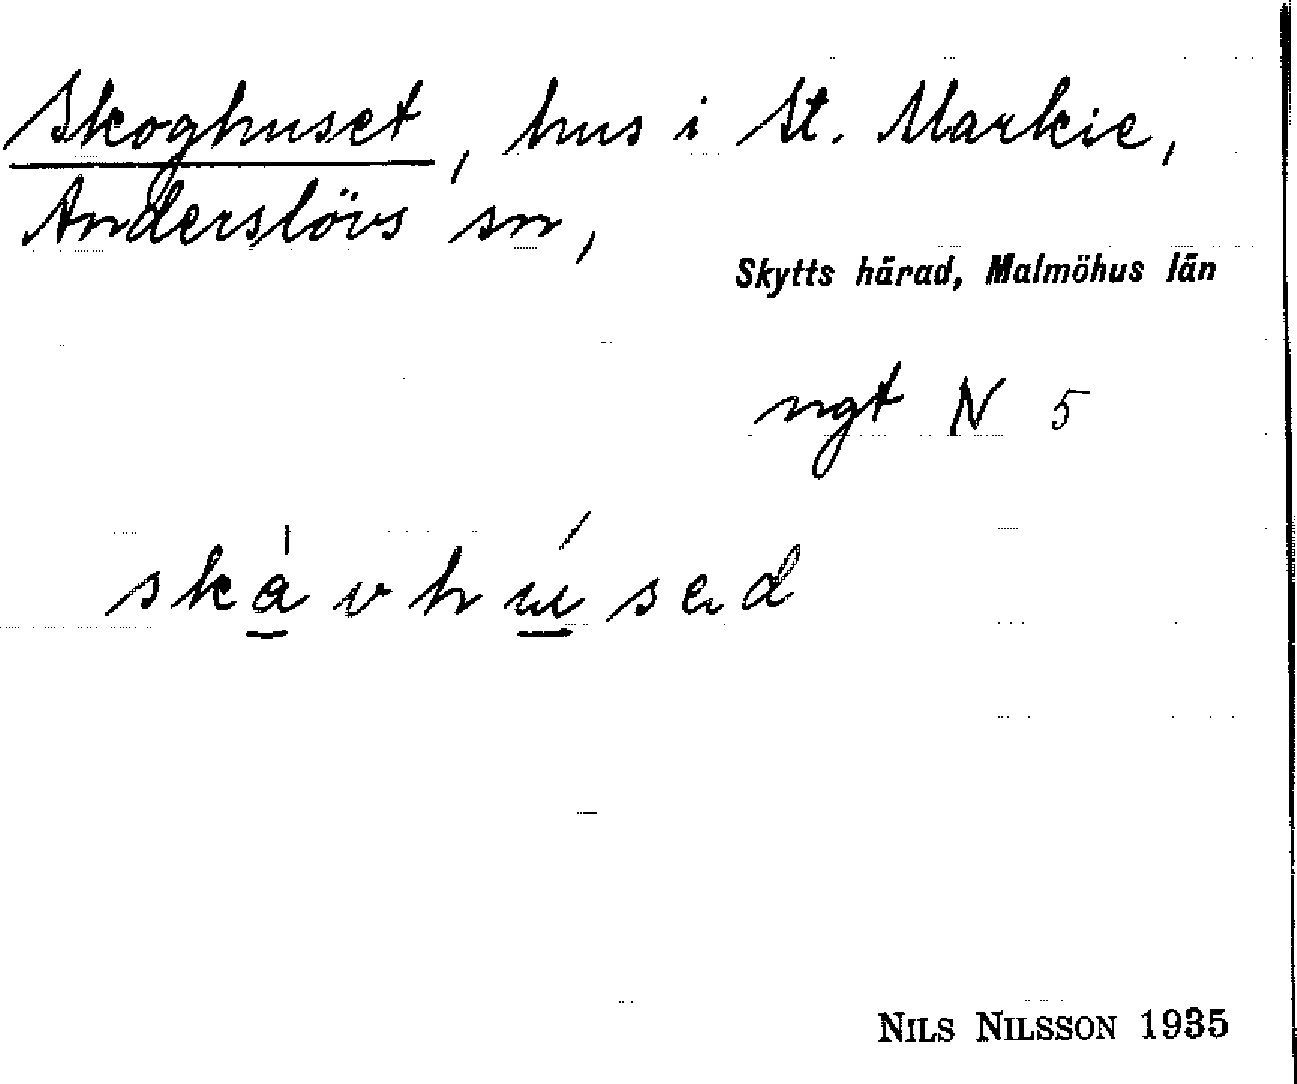 Skoghuset, hus i St. Markie,
Anderslövs sn,
Skytts härad, Malmöhus län
ngt N 5
skavhúsed
NILS NILSSON 1935